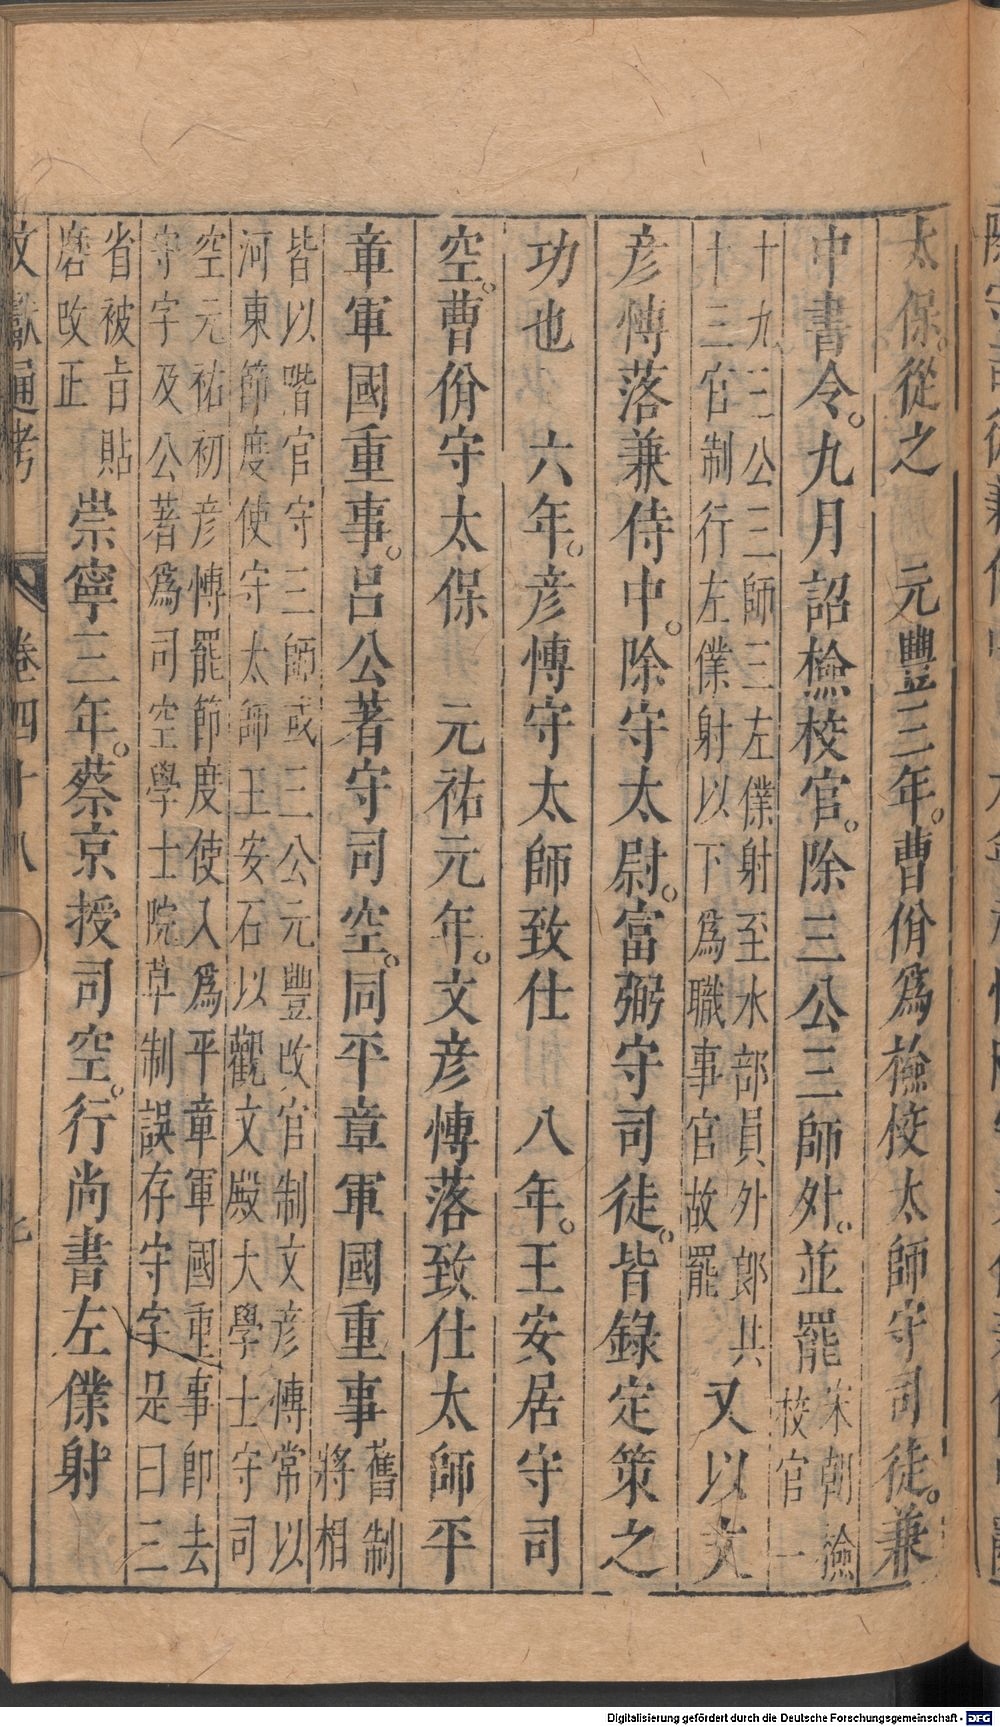 太保。從之　元豐三年。曹佾爲檢校太師守司徒。兼
中書令。九月詔檢校官。除三公三師外。並罷宋朝檢校官一
十九三公三師三左僕射至水部員外郎共
十三官制行左僕射以下爲職事官故罷
又以文
彥愽落兼侍中。除守太尉。富弼守司徒。皆錄定策之
功也　六年。彥愽守太師致仕　八年。王安居守司
空。曹佾守太保　元祐元年。文彥愽落致仕太師平
章軍國重事。呂公著守司空。同平章軍國重事舊制將相
皆以階官守三師或三公元豐改官制文彥愽常以
河東節度使守太師王安石以觀文殿大學士守司
空元祐初彥愽罷節度使入爲平章軍國重事卽去
守字及公著爲司空學士院草制誤存守字是日三
省被旨貼
磨改正
崇寧三年。蔡京授司空。行尚書左僕射
文獻通考　卷四十八
Digitalisierung gefördert durch die Deutsche Forschungsgemeinschaft - DFG